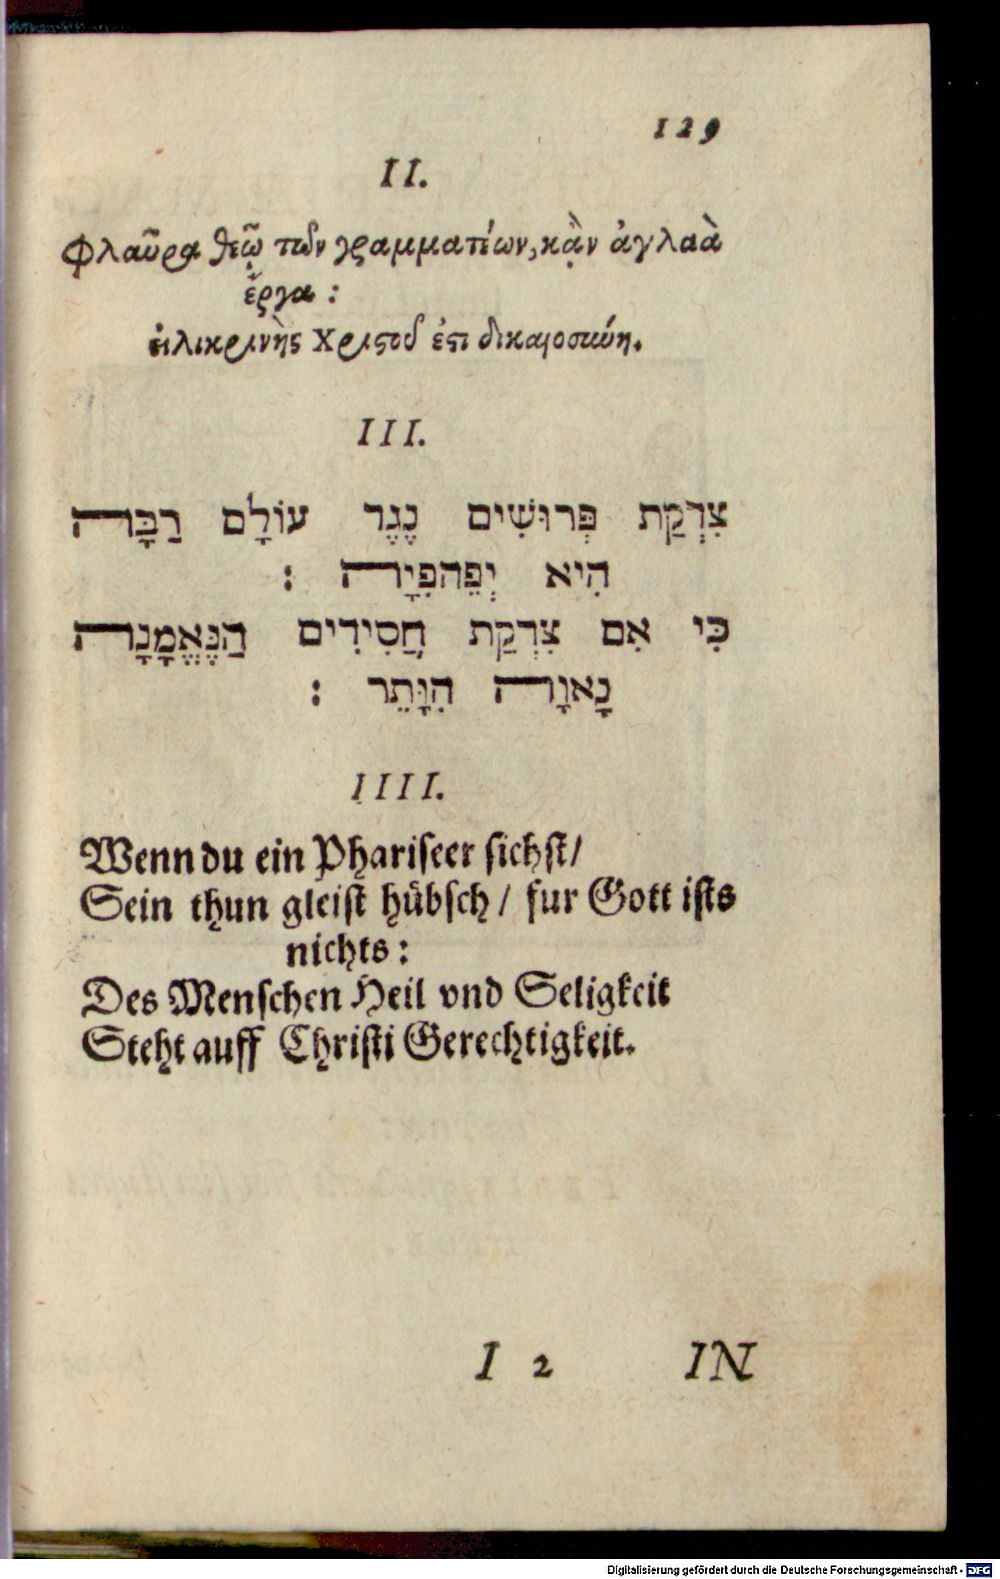 129
II.
Φλαῦρα θεῷ τῶν γραμματέων, κᾂν ἀγλαὰ
ἔργα :
εἰλικρινὴς Χριστοῦ ἐστι δικαιοσύνη.
III.
צִדְקַת פְּרוּשִׁים נֶגֶד עוֹלָם רַבָּה
הִיא יְפֵהפִיָה :
כִּי אִם צִדְקַת חֲסִידִים הַנֶּאֱמָנָה
נָאוָה הִוָּתֵר :
IIII.
Wenn du ein Phariseer sichst/
Sein thun gleist hübsch/ fur Gott ists
nichts:
Des Menschen Heil vnd Seligkeit
Steht auff Christi Gerechtigkeit.
I 2 IN
Digitalisierung gefördert durch die Deutsche Forschungsgemeinschaft - DFG